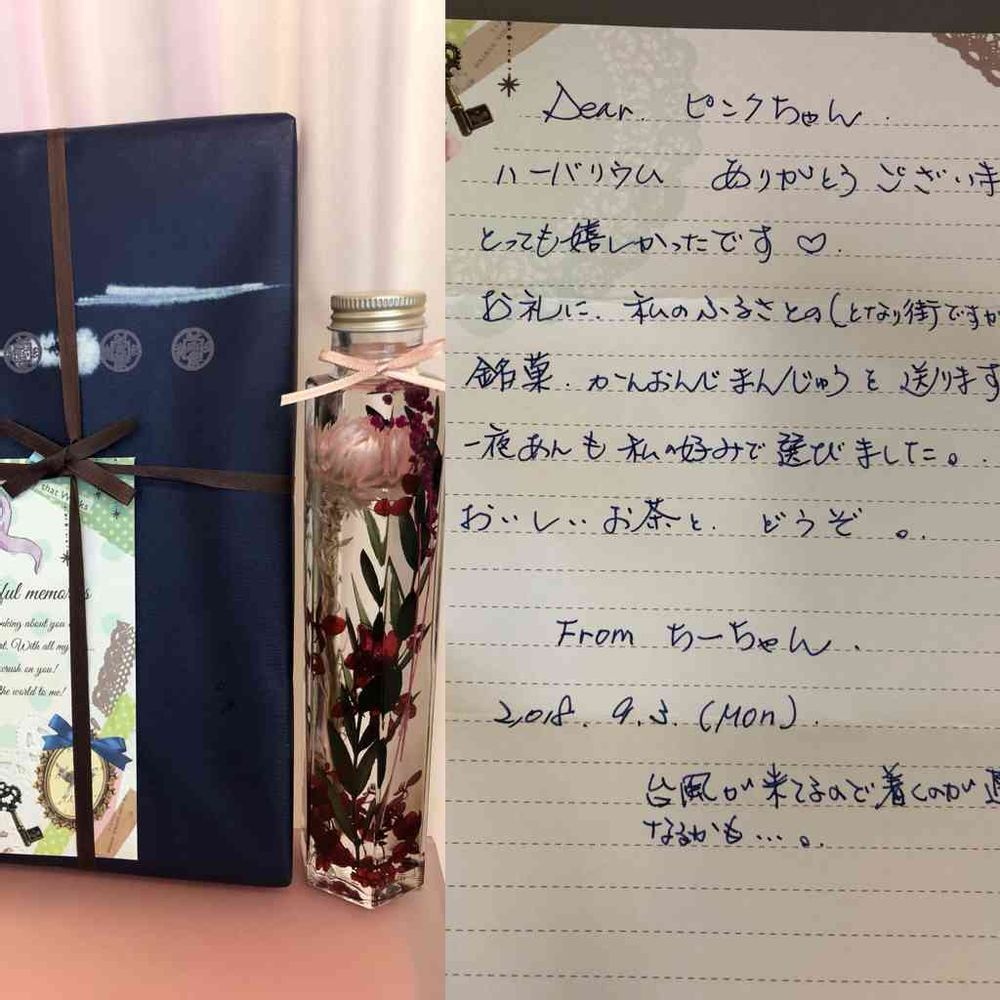 that W
ful memories
nking about you
t. With all my
crush on you!
the world to me!
Dear. ピンクちゃん.
ハーバリウム ありがとうございま
とっても嬉しかったです♡.
お礼に、私のふるさとの(となり街ですが
銘菓.かんおんじまんじゅうを送ります
一夜あんも私の好みで選びました。.
おいしいお茶と、どうぞ。.
From ちーちゃん.
2,018.9.3.(Mon).
台風が来てるので着くのが
なるかも…。.